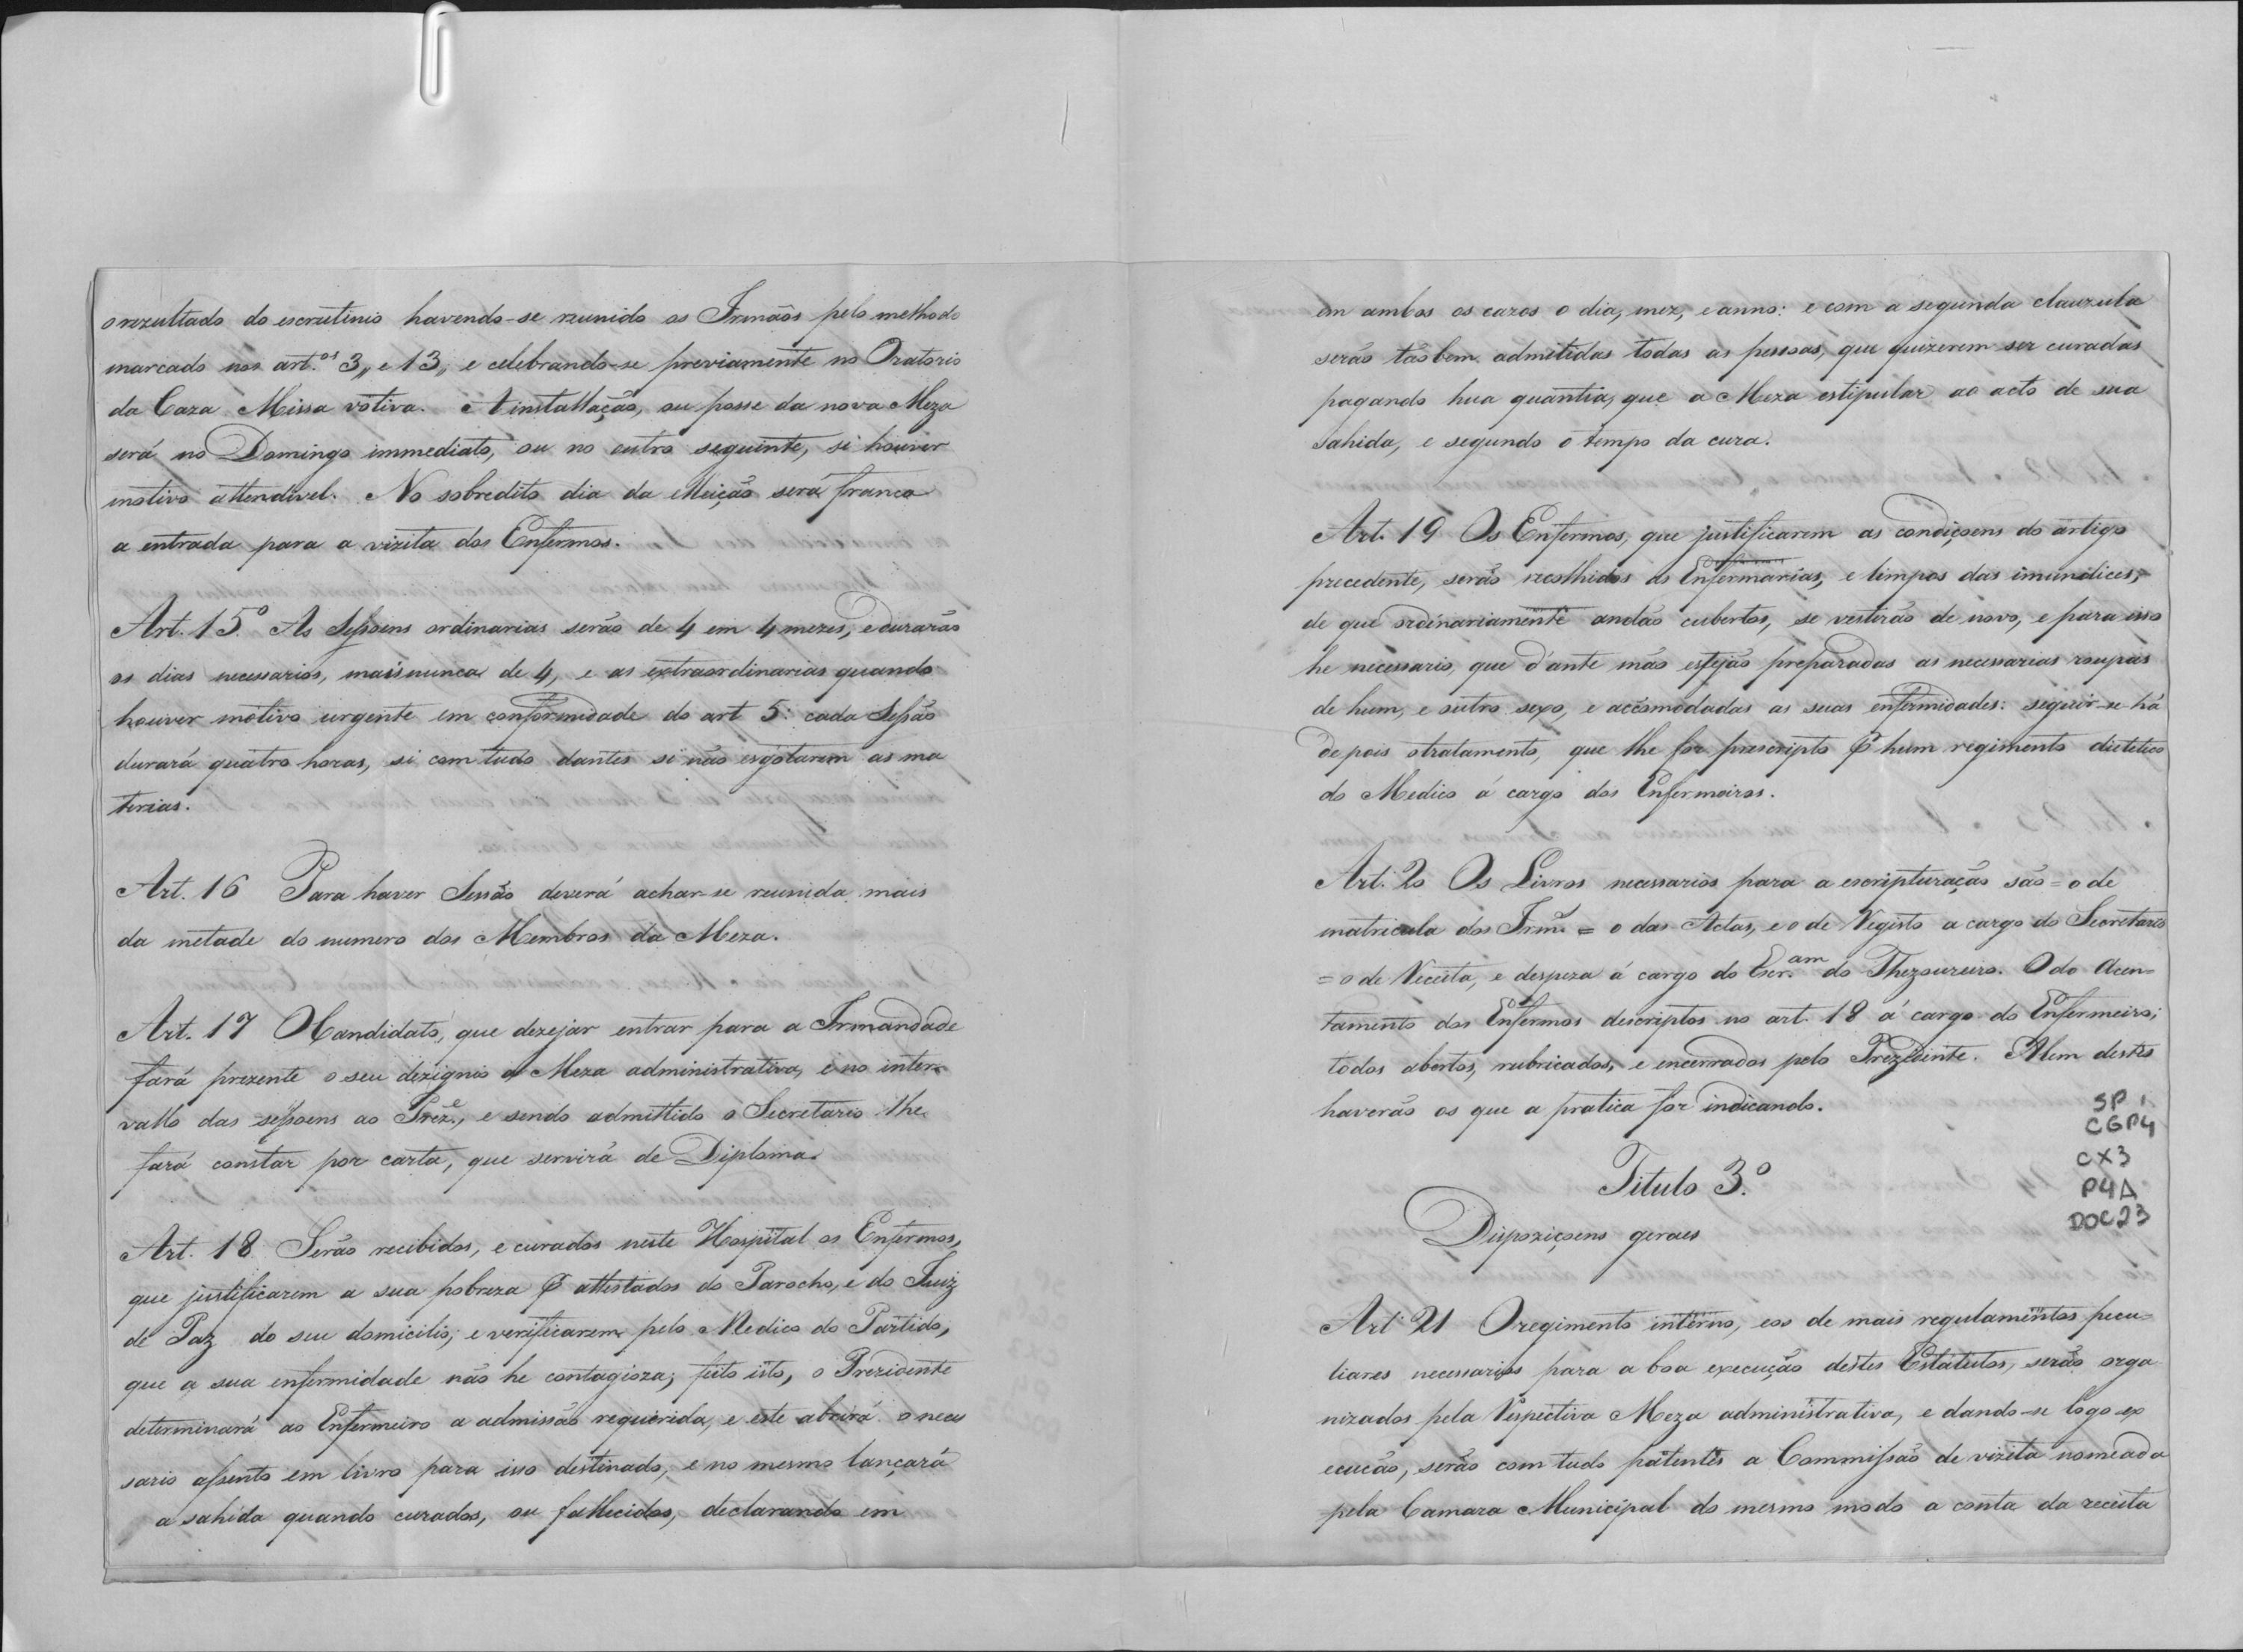 o rezultado do escrutinio havendo-se reunido os Irmãos pelo methodo
marcado nos art.os 3,, e 13,, e celebrando-se previamente no Oratorio
da Caza Missa votiva. A installação, ou posse da nova Meza
será no Domingo immediato, ou no outro seguinte, si houver
motivo attendivel. No sobredito dia da elleição será franca
a entrada para a vizita dos Enfermos.
Art. 15.º As Sessoens ordinarias serão de 4 em 4 mezes, e durarão
os dias necessarios, mais nunca de 4, e as extraordinarias quando
houver motivo urgente em conformidade do art 5: cada Sessão
durará quatro horas, si com tudo dantes si não esgotarem as ma
terias.
Art. 16 Para haver Sessão deverá achar-se reunida mais
da metade do numero dos Membros da Meza.
Art. 17 O Candidato, que dezejar entrar para a Irmandade
fará prezente o seu dezignio a Meza administrativa, e no inter-
vallo das sessoens ao Preze., e sendo admittido o Secretario lhe
fará constar por carta, que servirá de Diploma.
Art. 18 Serão recibidos, e curados neste Hospital os Enfermos,
que justificarem a sua pobreza P attestados do Parocho, e do Juiz
de Paz do seu domicilio; e verificarem pelo Medico do Partido,
que a sua enfermidade não he contagioza; feito isto, o Prezidente
determinará ao Enfermeiro a admissão requerida, e este abrirá o neces
sario assento em livro para isso destinado, e no mesmo lançará
a sahida quando curados, ou fallecidos, declarando em
em ambos os cazos o dia, mez, e anno: e com a segunda clauzula
serão tãobem admitidas todas as pessoas, que quizerem ser curadas
pagando hua quantia, que a Meza estipular ao acto de sua
Sahida, e segundo o tempo da cura.
Art. 19 Os Enfermos, que justificarem as condiçoens do artigo
precedente, serão recolhidos as Enfermarias, e limpos das imundices,
de que ordinariamente andão cubertos, se vestirão de novo, e para isso
he necessario, que d'ante mão estejão preparadas as necessarias roupas
de hum, e outro sexo, e accomodadas as suas enfermidades: seguir-se há
depois o tratamento, que lhe for prescripto P hum regimento dietetico
do Medico á cargo dos Enfermeiros.
Art. 20 Os Livros necessarios para a escripturação são = o de
matricula dos Irm.s = o das Actas, e o de Registo a cargo do Secretario
= o de Receita, e despeza á cargo do Escr.am do Thezoureiro. O do Acen-
tamento dos Enfermos descriptos no art. 18 á cargo do Enfermeiro;
todos abertos, rubricados, e encerrados pelo Prezidente. Alem destes
haverão os que a pratica for indicando.
SP 1
CGP4
CX3
P4A
DOC23
Titulo 3.º
Dispoziçoens geraes
Art 21 O regimento interno, e os de mais regulamentos pecu-
liares necessarios para a boa execução destes Estatutos, serão orga
nizados pela Respectiva Meza administrativa, e dando-se logo ex
ecucão, serão com tudo patentes a Commissão de vizita nomeada
pela Camara Municipal do mesmo modo a conta da receita